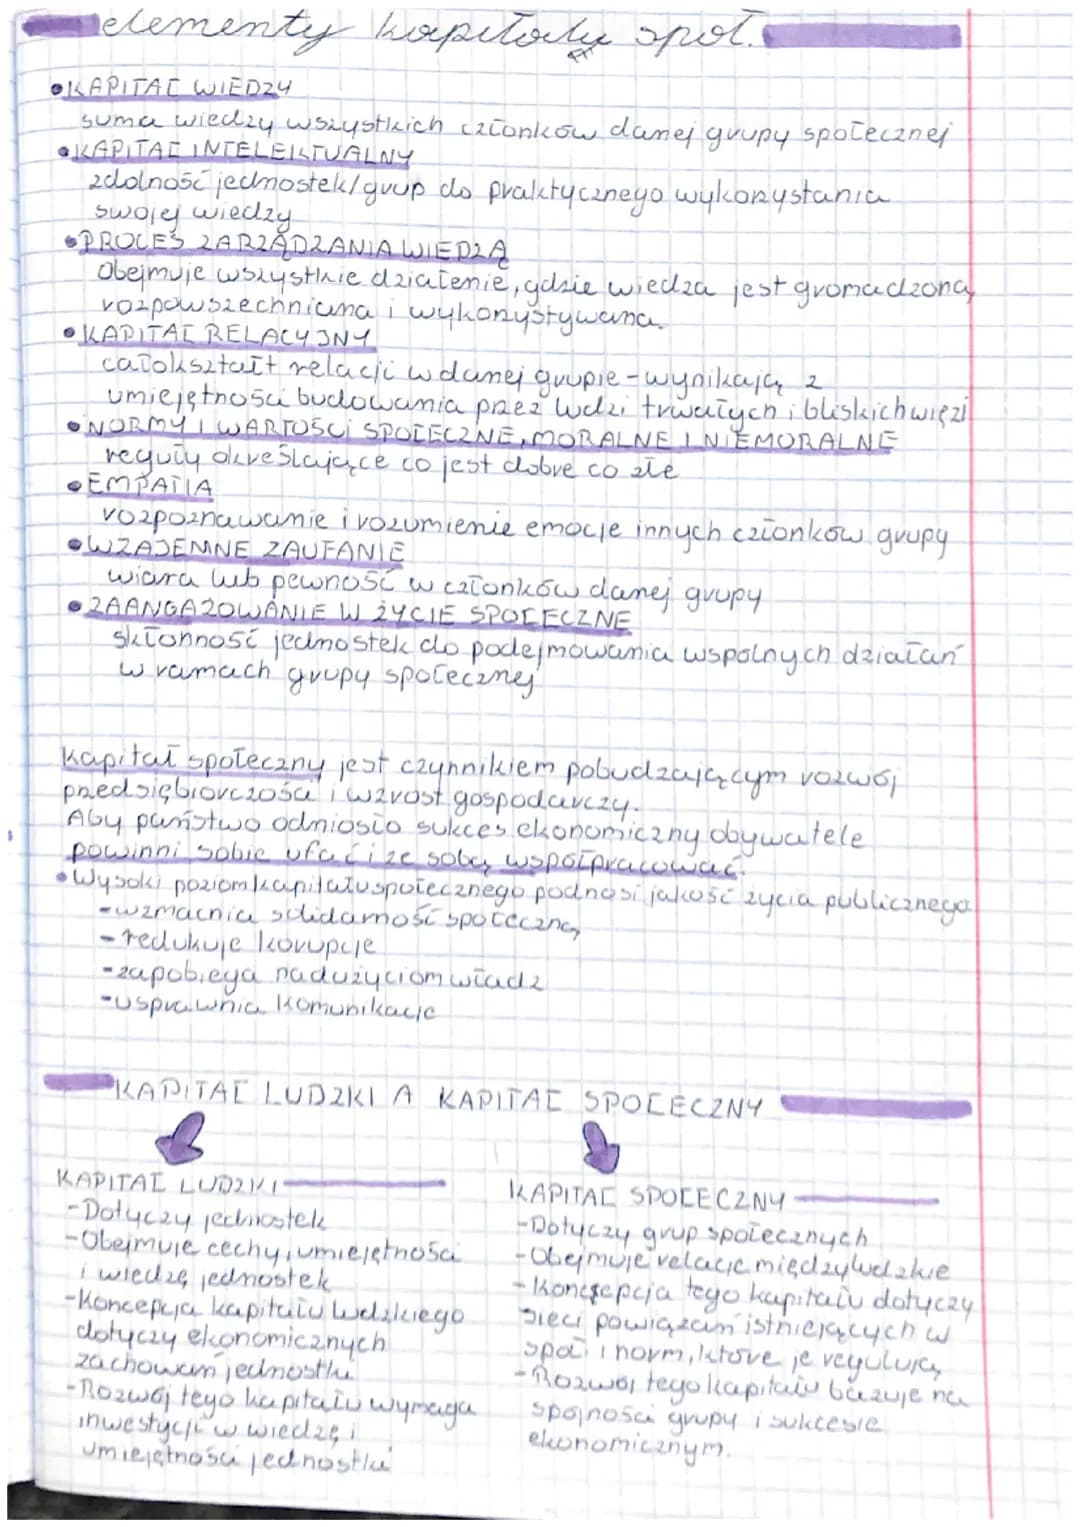 elementy kapitału społ.
•KAPITAŁ WIEDZY
suma wiedzy wszystkich członków danej grupy społecznej
•KAPITAŁ INTELEKTUALNY
zdolność jednostek/grup do praktycznego wykorzystania
swojej wiedzy
•PROCES ZARZĄDZANIA WIEDZĄ
Obejmuje wszystkie działenie, gdzie wiedza jest gromadzona,
rozpowszechniana i wykorzystywana.
•KAPITAŁ RELACYJNY
całokształt relacji w danej grupie - wynikają z
umiejętności budowania przez ludzi trwałych i bliskich więzi
•NORMY I WARTOŚCI SPOŁECZNE, MORALNE I NIEMORALNE
reguły określające co jest dobre co złe
•EMPATIA
rozpoznawanie i rozumienie emocje innych członków grupy
•WZAJEMNE ZAUFANIE
wiara lub pewność w członków danej grupy
•ZAANGAŻOWANIE W ŻYCIE SPOŁECZNE
skłonność jednostek do podejmowania wspólnych działań
w ramach grupy społecznej
Kapitał społeczny jest czynnikiem pobudzającym rozwój
przedsiębiorczości i wzrost gospodarczy.
Aby państwo odniosło sukces ekonomiczny obywatele
powinni sobie ufać i ze sobą współpracować.
•Wysoki poziom kapitału społecznego podnosi jakość życia publicznego
-wzmacnia solidarność społeczną
-redukuje korupcje
-zapobiega nadużyciom władz
-usprawnia komunikacje
KAPITAŁ LUDZKI A KAPITAŁ SPOŁECZNY
KAPITAŁ LUDZKI
-Dotyczy jednostek
-Obejmuje cechy, umiejętności
i wiedzę jednostek
-Koncepcja kapitału ludzkiego
dotyczy ekonomicznych
zachowań jednostki
-Rozwój tego kapitału wymaga
inwestycji w wiedzę i
umiejętności jednostki
KAPITAŁ SPOŁECZNY
-Dotyczy grup społecznych
-Obejmuje relacje międzyludzkie
-Koncepcja tego kapitału dotyczy
sieci powiązań istniejących w
społ. i norm, które je regulują
-Rozwój tego kapitału bazuje na
spójności grupy i sukcesie
ekonomicznym.